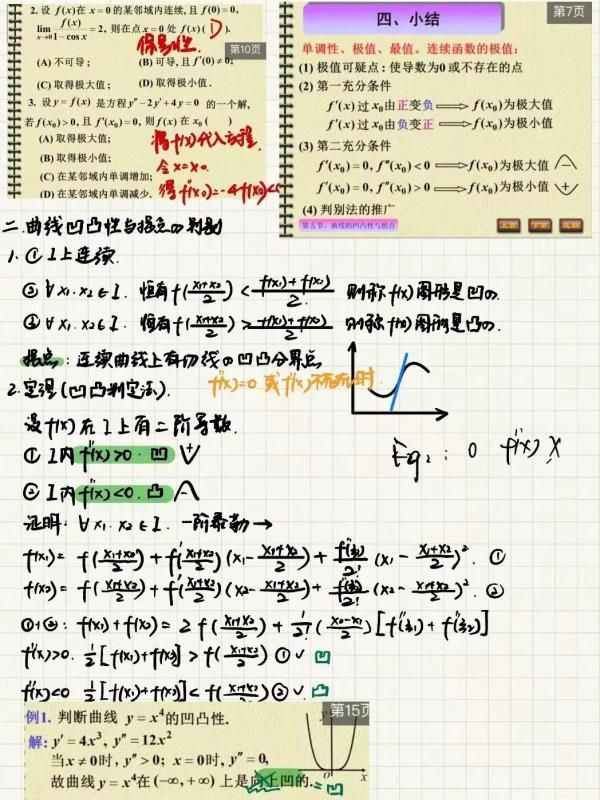 2. 设 f(x) 在 x = 0 的某邻域内连续, 且 f(0) = 0,
lim x→0 f(x)/(1 − cos x) = 2, 则在点 x = 0 处 f(x) ( D ).
保号性.
第10页
(A) 不可导; (B) 可导, 且 f'(0) ≠ 0;
(C) 取得极大值; (D) 取得极小值.
3. 设 y = f(x) 是方程 y'' − 2y' + 4y = 0 的一个解,
若 f(x₀) > 0, 且 f'(x₀) = 0, 则 f(x) 在 x₀ ( )
(A) 取得极大值;
(B) 取得极小值;
(C) 在某邻域内单调增加;
(D) 在某邻域内单调减少.
将f(x)代入方程.
令 x = x₀.
得 f''(x₀) = −4f(x₀)<0
第7页
四、小结
单调性、极值、最值。连续函数的极值:
(1) 极值可疑点: 使导数为0 或不存在的点
(2) 第一充分条件
f'(x) 过 x₀ 由正变负 ⟹ f(x₀) 为极大值
f'(x) 过 x₀ 由负变正 ⟹ f(x₀) 为极小值
(3) 第二充分条件
f'(x₀) = 0, f''(x₀) < 0 ⟹ f(x₀) 为极大值
f'(x₀) = 0, f''(x₀) > 0 ⟹ f(x₀) 为极小值
(4) 判别法的推广
第五节、曲线的凹凸性与拐点
上页 下页 返回
二. 曲线凹凸性与拐点の判别
1. ① I上连续.
② ∀ x₁. x₂ ∈ I. 恒有 f((x₁+x₂)/2) < (f(x₁)+f(x₂))/2. 则称 f(x) 图形是凹の.
③ ∀ x₁. x₂ ∈ I. 恒有 f((x₁+x₂)/2) > (f(x₁)+f(x₂))/2. 则称 f(x) 图形是凸の.
拐点: 连续曲线上有切线の凹凸分界点
f''(x)=0 或 f''(x)不存在时.
2. 定理 (凹凸判定法).
设 f(x) 在 I 上有二阶导数.
① I内 f''(x)>0. 凹
② I内 f''(x)<0. 凸
Eg₂: 0 f''(x) X
证明: ∀ x₁. x₂ ∈ I. 一阶泰勒 →
f(x₁) = f((x₁+x₂)/2) + f'((x₁+x₂)/2)(x₁ − (x₁+x₂)/2) + f''(ξ₁)/2! (x₁ − (x₁+x₂)/2)². ①
f(x₂) = f((x₁+x₂)/2) + f'((x₁+x₂)/2)(x₂ − (x₁+x₂)/2) + f''(ξ₂)/2! (x₂ − (x₁+x₂)/2)². ②
①+②: f(x₁) + f(x₂) = 2 f((x₁+x₂)/2) + 1/2! ((x₂−x₁)/2) [f''(ξ₁) + f''(ξ₂)]
f''(x)>0. ½ [f(x₁)+f(x₂)] > f((x₁+x₂)/2) ① ✓ 凹
f''(x)<0 ½ [f(x₁)+f(x₂)] < f((x₁+x₂)/2) ② ✓ 凸
第15页
例1. 判断曲线 y = x⁴ 的凹凸性.
解: y' = 4x³, y'' = 12x²
当 x ≠ 0 时, y'' > 0; x = 0 时, y'' = 0,
故曲线 y = x⁴ 在 (−∞, +∞) 上是向上凹的. = 凹
y
o
x